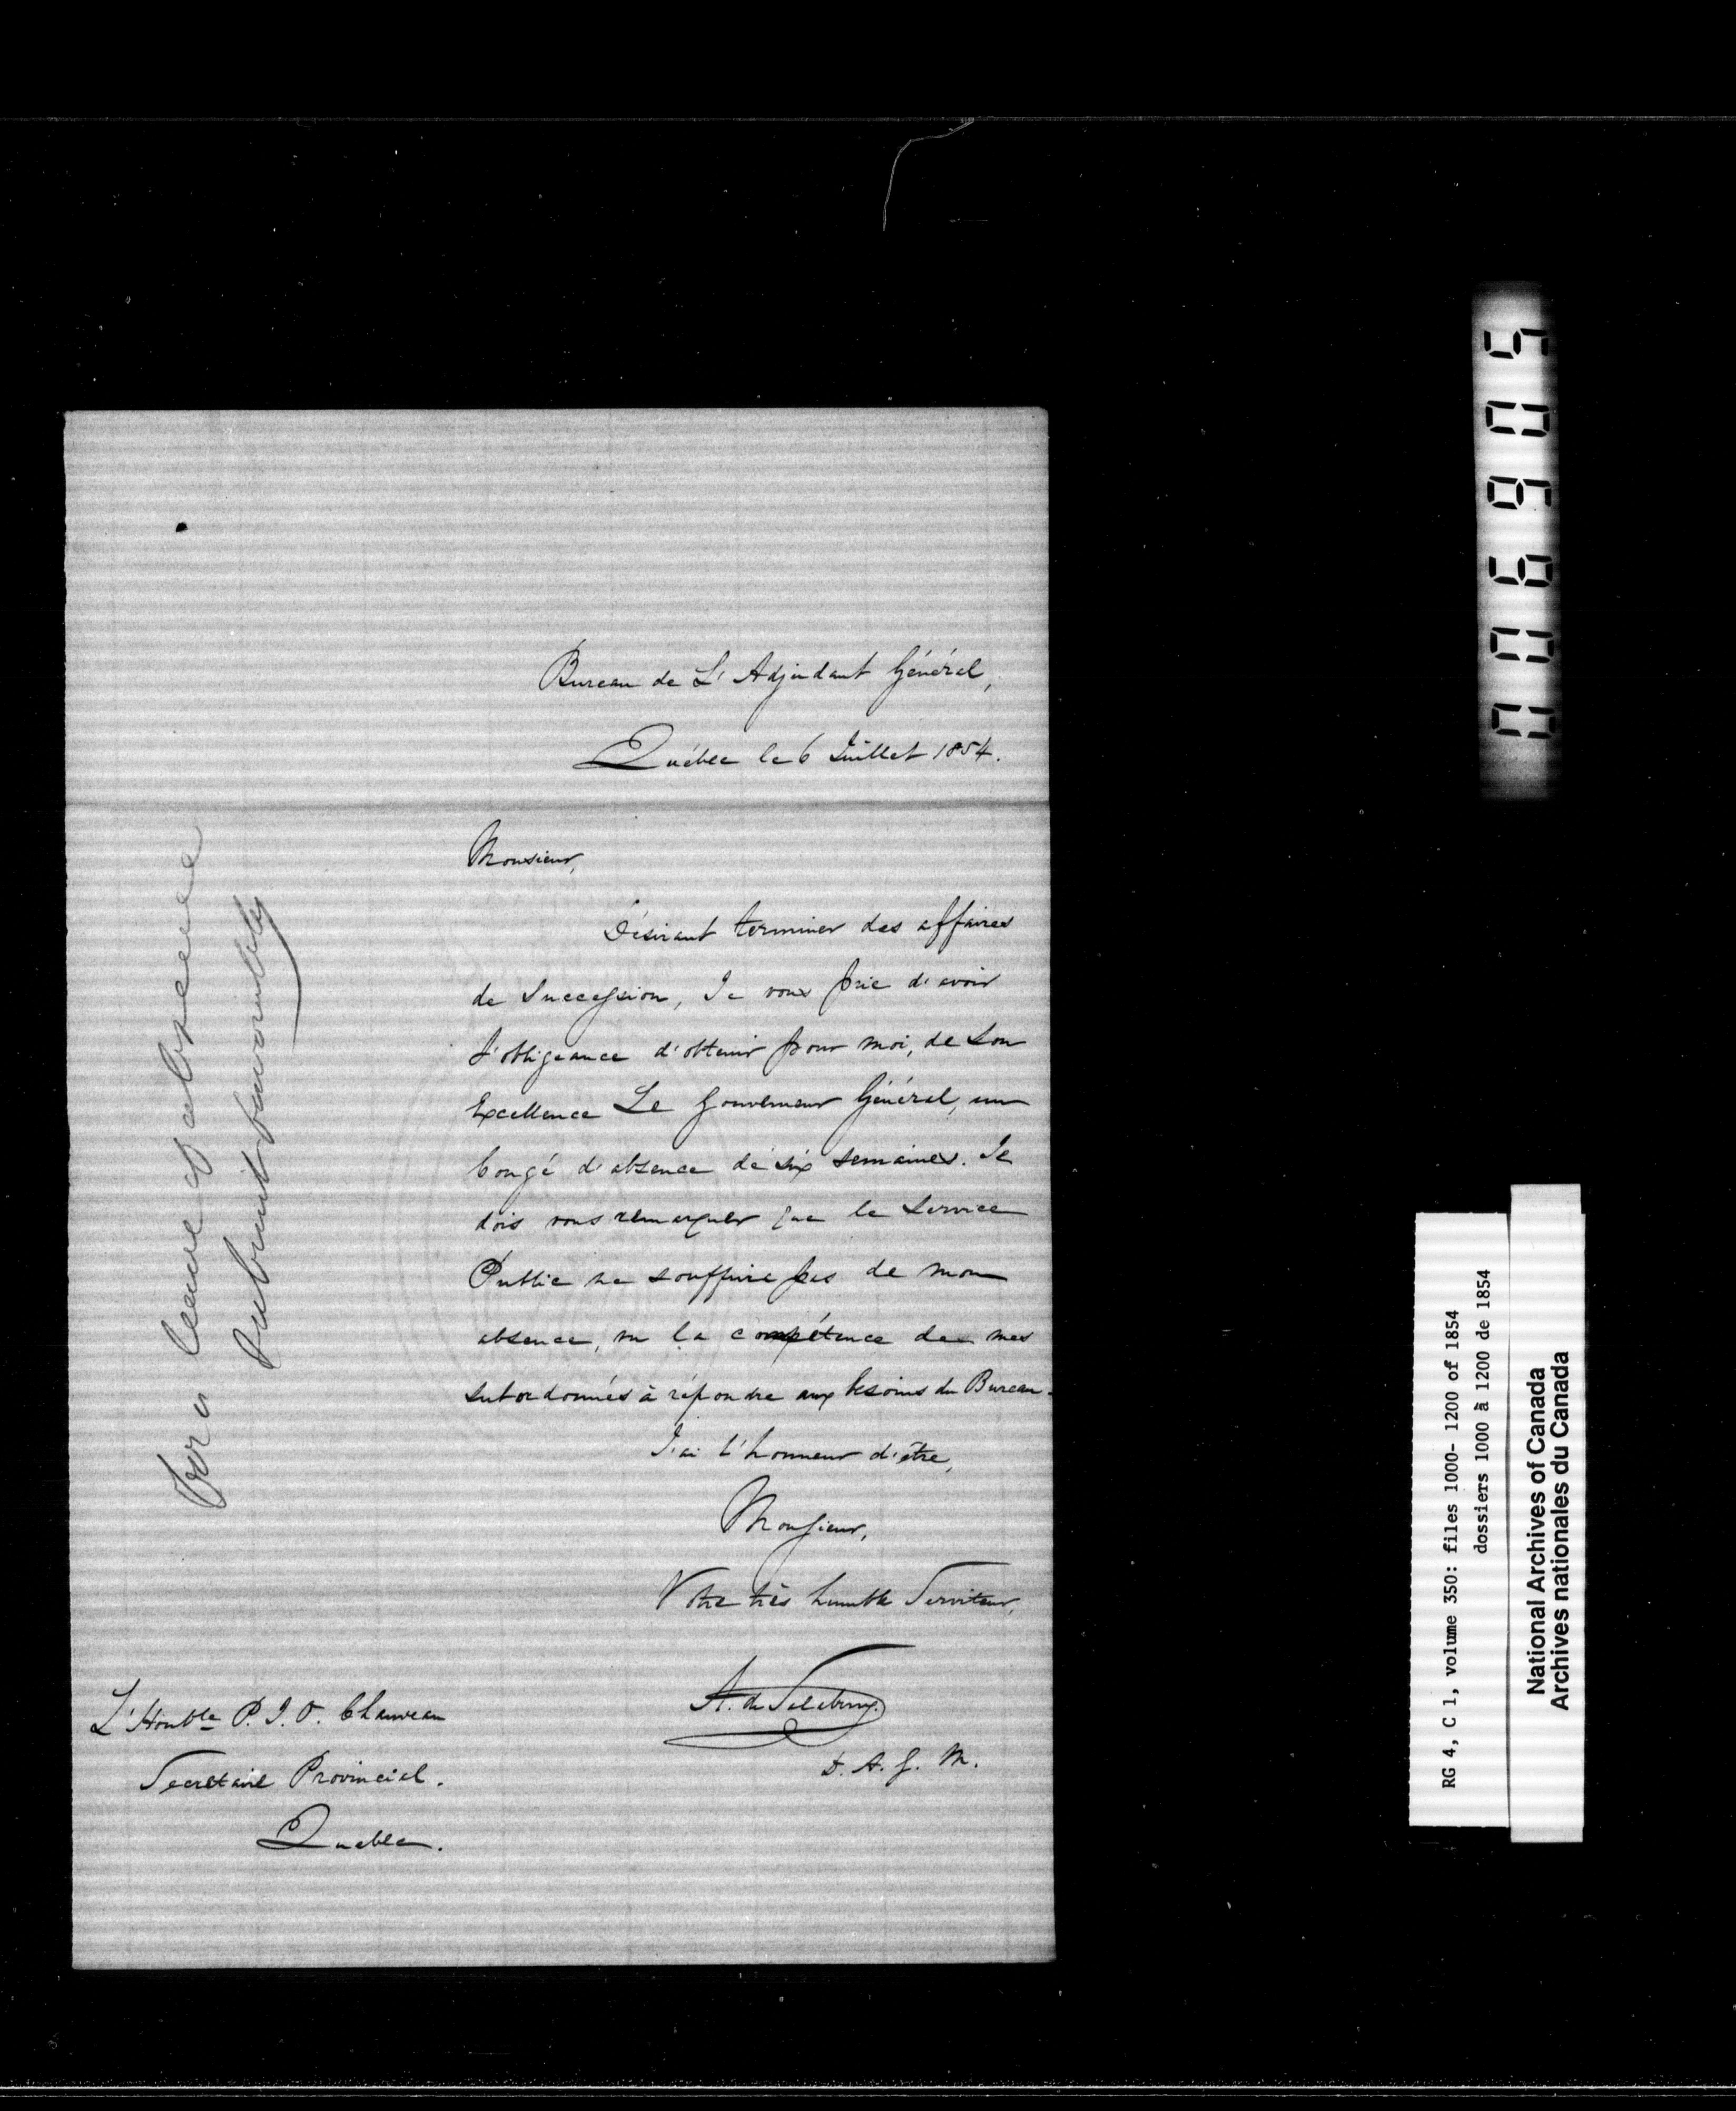 Bureau de L'Adjudant Général,
Québec le 6 Juillet 1854.
Monsieur,
Désirant terminer des affaires
de Succession, Je vous prie d'avoir
l'obligeance d'obtenir pour moi, de Son
Excellence Le Gouverneur Général, un
Congé d'absence de six semaines. Je
dois vous remarquer que le Service
Public ne souffrira pas de mon
absence, vu la compétence de mes
subordonnés à répondre aux besoins du Bureau.
J'ai l'honneur d'être,
Monsieur,
Votre très humble Serviteur,
A. de Salaberry.
D. A. G. M.
L'Honble P. J. O. Chauveau
Secrétaire Provincial.
Québec.
for leave of absence
Submit favourably
006905
RG 4, C 1, volume 350: files 1000- 1200 of 1854
dossiers 1000 à 1200 de 1854
National Archives of Canada
Archives nationales du Canada